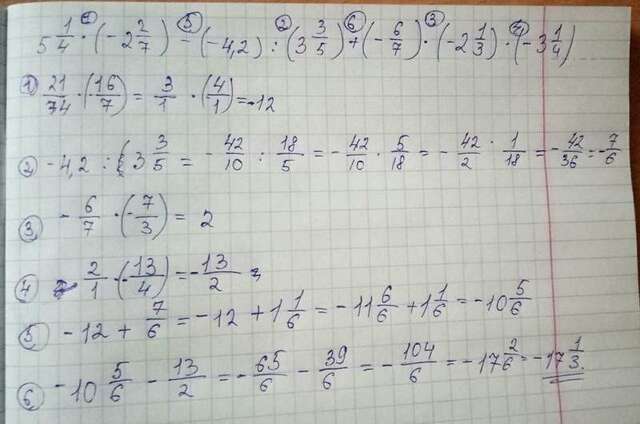 5 1/4 · (-2 2/7) - (-4,2) : (3 3/5) + (-6/7) · (-2 1/3) · (-3 1/4)
1) 21/74 · (16/7) = 3/1 · (4/1) = -12
2) -4,2 : (3 3/5 = -42/10 : 18/5 = -42/10 · 5/18 = -42/2 · 1/18 = -42/36 = -7/6
3) -6/7 · (-7/3) = 2
4) 2/1 · (-13/4) = -13/2
5) -12 + 7/6 = -12 + 1 1/6 = -11 6/6 + 1 1/6 = -10 5/6
6) -10 5/6 - 13/2 = -65/6 - 39/6 = -104/6 = -17 2/6 = -17 1/3.